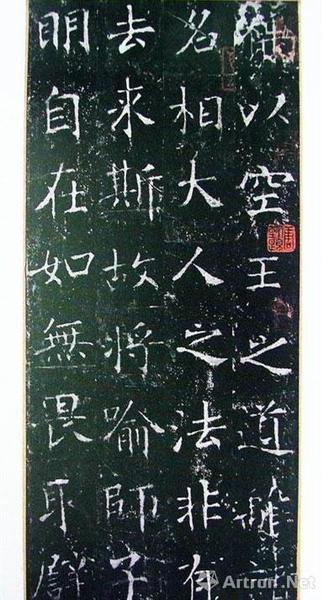 竊以空王之道離
名相大人之法非有
去来斯故將喻師子
明自在如無畏取譬
Artron.Net